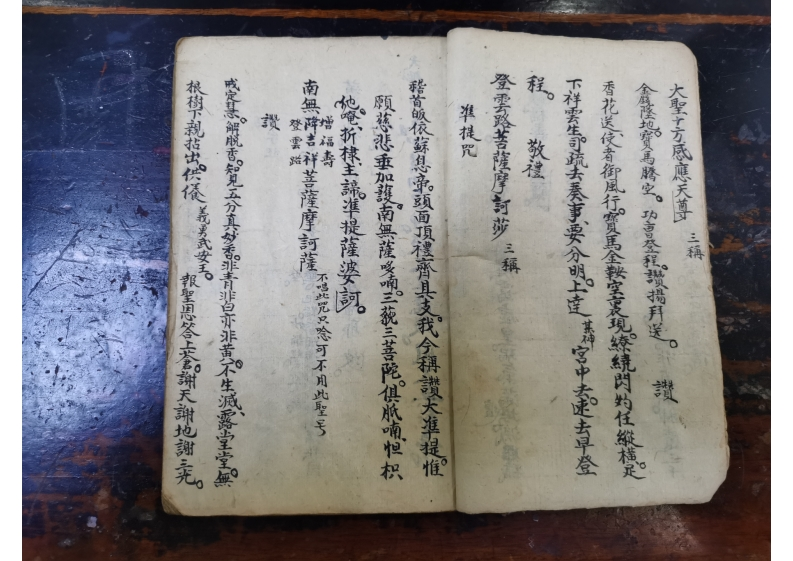 大聖十方感應天尊 三稱
金錢陸地。寶馬騰空。功曹登程。讚揚拜送。 讚
香花送、使者御風行。寶馬金鞍空裏現。繚繞閃灼任縱橫。足
下祥雲生。司疏去奏事、要分明。上達 某神 宮中去。速去早登
程。 敬禮
登雲路菩薩摩訶莎 三稱
准提咒
稽首皈依蘇悉帝。頭面頂禮齊具支。我今稱讚大準提。惟
願慈悲垂加護。南無薩哆喃。三藐三菩陀。俱胝喃、怛枳
他唵、折棣、主諦、準提薩婆訶。
南無 增福壽 降吉祥 登雲路 菩薩摩訶薩 不唱此咒只唸可不用此聖号
讚
戒定慧。解脫香。知見五分真妙香。非青非白亦非黃。不生滅、露堂堂。無
根樹下親拈出。供養 義勇武安王。 報聖恩。答上蒼。謝天謝地謝三光。